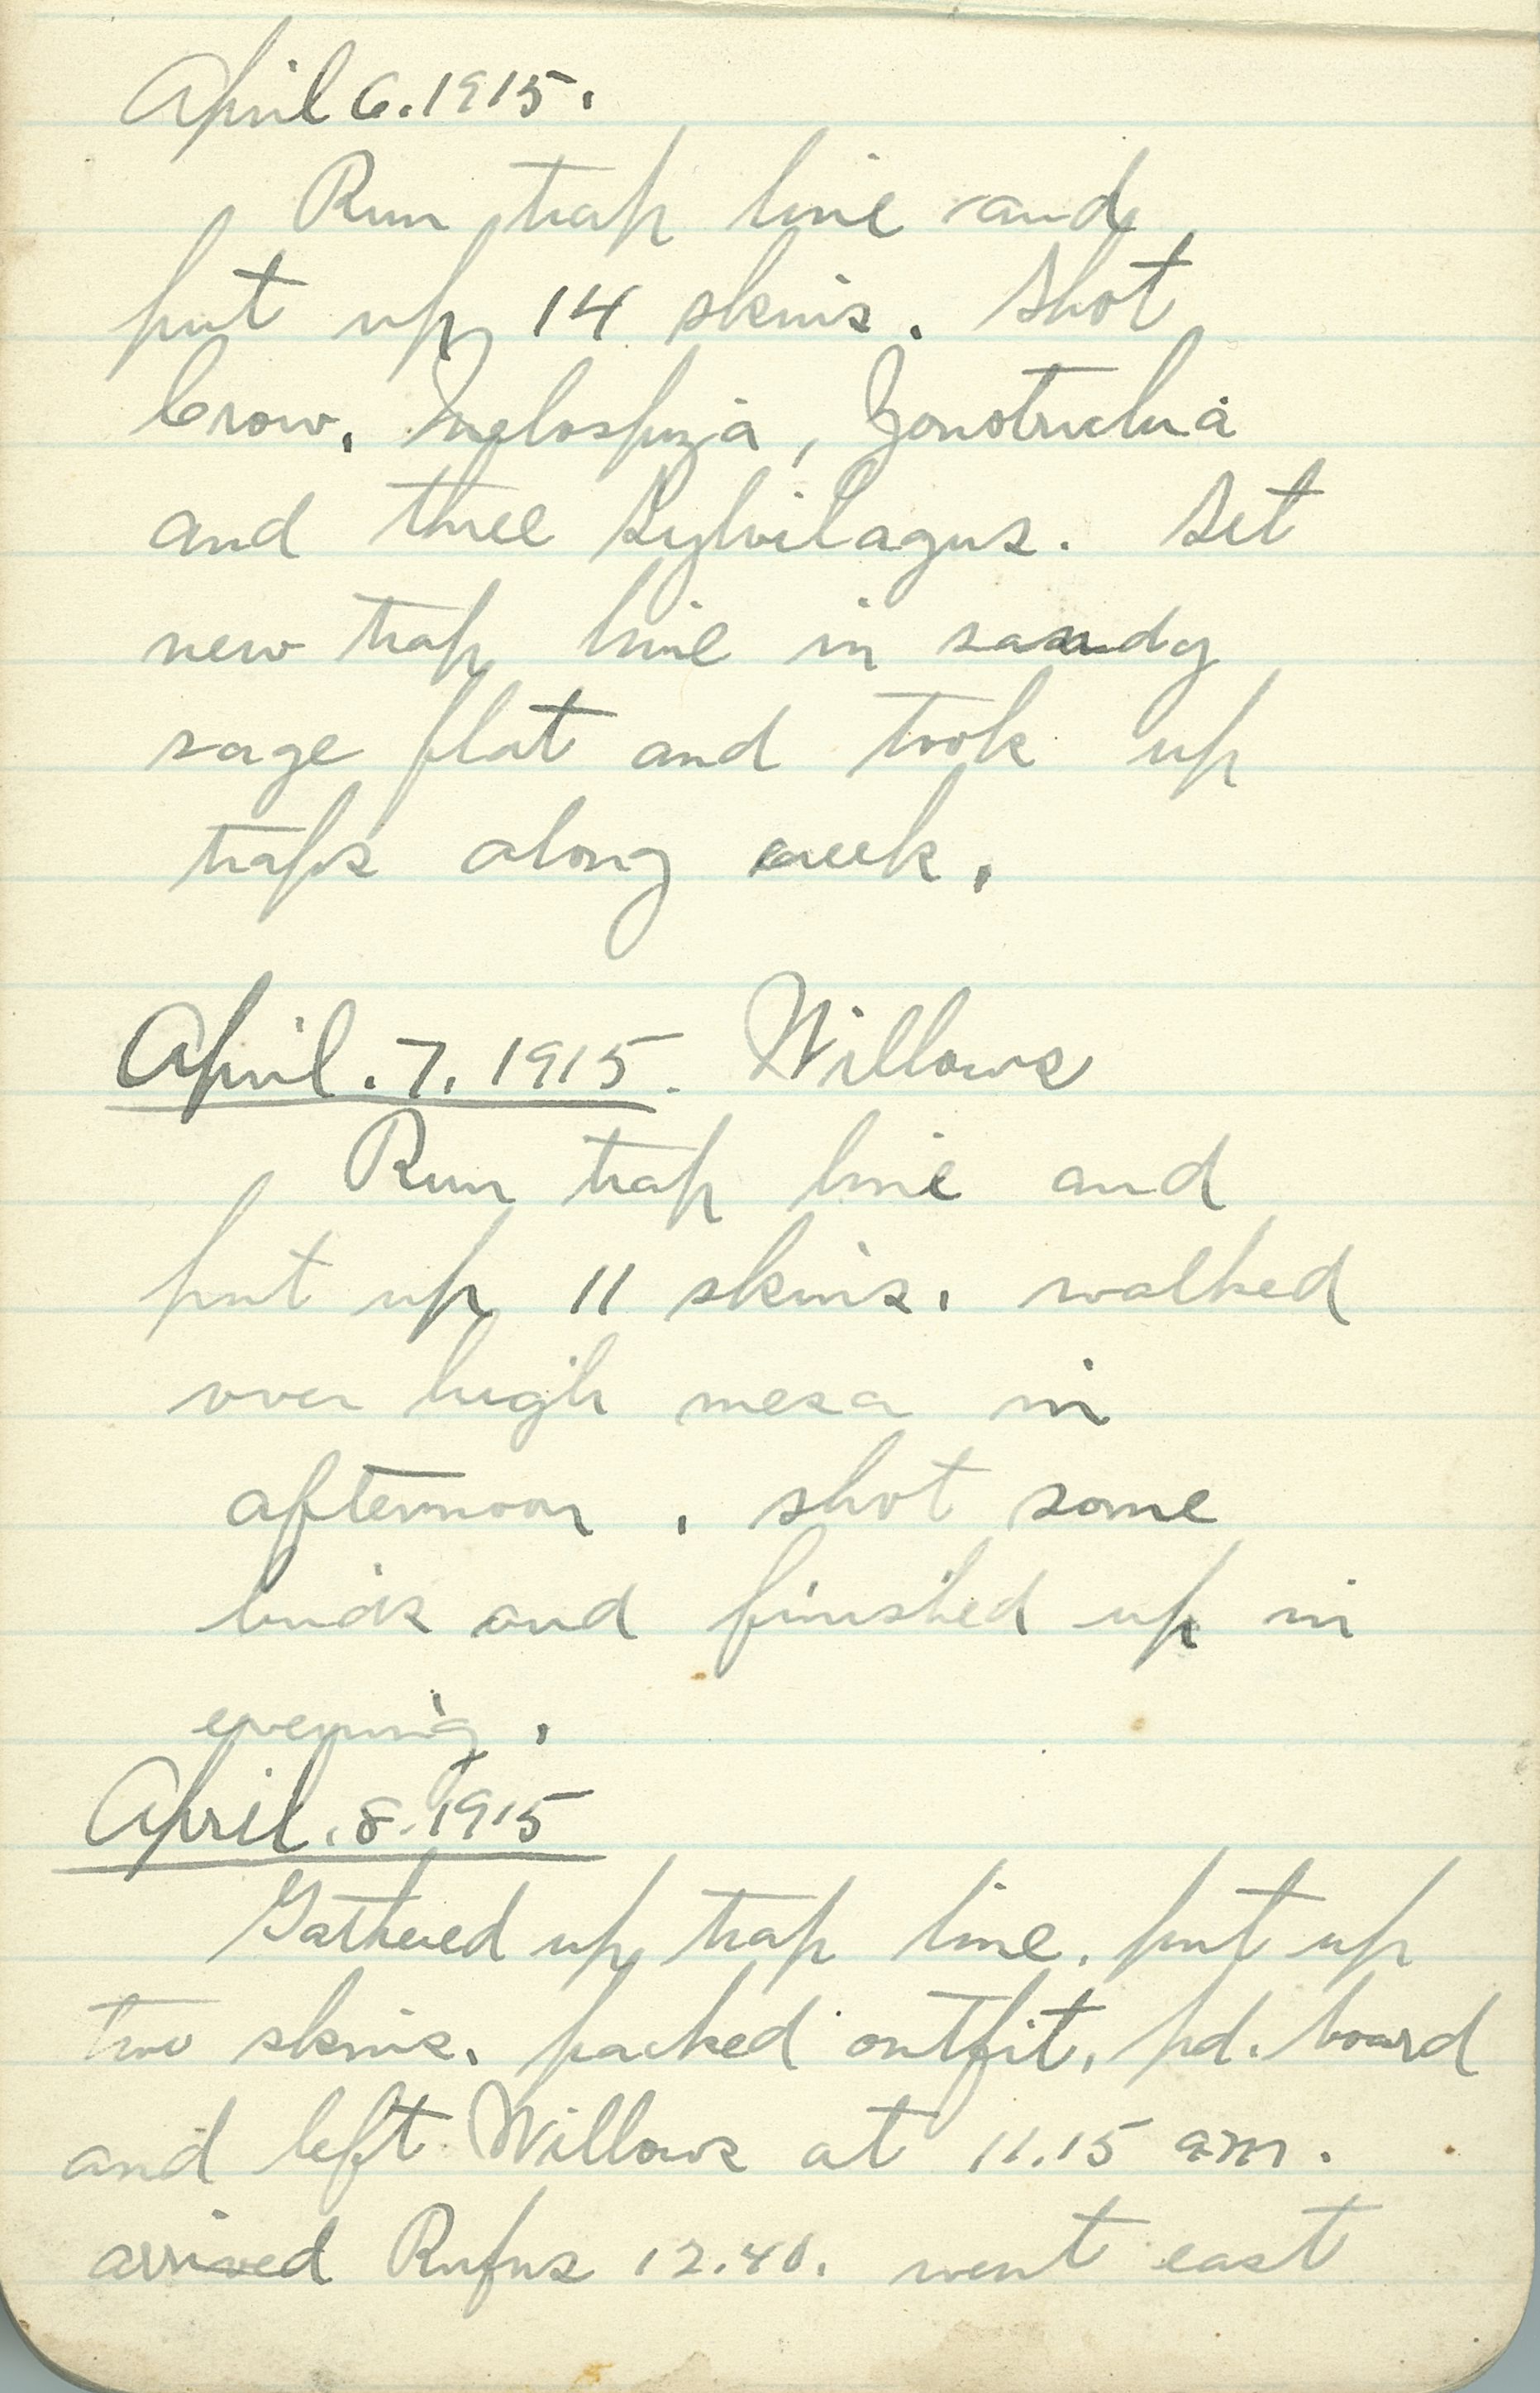 April 6. 1915.
Run trap line and
put up 14 skins. Shot
Crow, Melospiza, Zonotrichia
and three Sylvilagus. Set
new trap line in sandy
sage flat and took up
traps along creek.
April. 7. 1915. Willows
Run trap line and
put up 11 skins. walked
over high mesa in
afternoon. shot some
birds and finished up in
evening.
April. 8. 1915
Gathered up trap line. put up
two skins. packed outfit, pd. board
and left Willows at 11.15 am.
arrived Rufus 12.40. went east